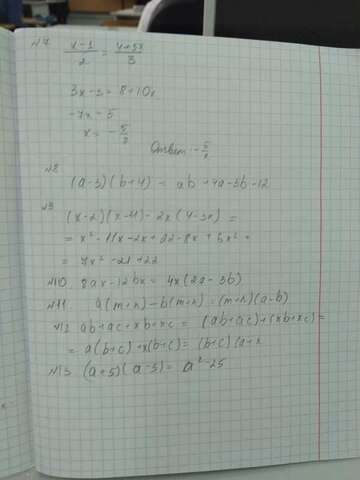 №7
x-1/2 = 4+5x/3
3x - 3 = 8 + 10x
-7x = 5
x = -5/7
Ответ: -5/7
№8
(a-3)(b+4) = ab + 4a - 3b - 12
№9
(x-2)(x-11) - 2x(4-3x) =
= x² - 11x - 2x + 22 - 8x + 6x² =
= 7x² - 21 + 22
№10. 8ax - 12bx = 4x(2a - 3b)
№11. a(m+n) - b(m+n) = (m+n)(a-b)
№12 ab+ac+xb+xc = (ab+ac)+(xb+xc) =
= a(b+c)+x(b+c) = (b+c)(a+x
№13 (a+5)(a-5) = a² - 25